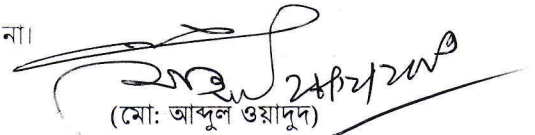 না।
(মো: আব্দুল ওয়াদুদ)